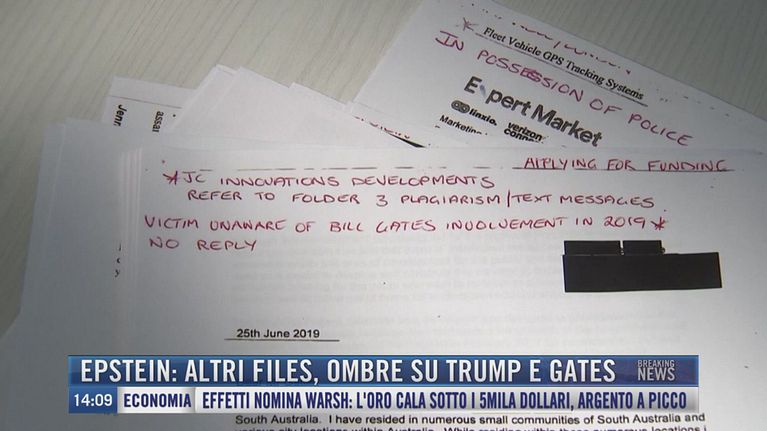 * Fleet Vehicle GPS Tracking Systems
IN POSSESSION OF POLICE
Expert Market
linxio.
verizon
connect
Marketing
Jenn
assa
APPLYING FOR FUNDING
*JC INNOVATIONS DEVELOPMENTS
REFER TO FOLDER 3 PLAGIARISM/TEXT MESSAGES
VICTIM UNAWARE OF BILL GATES INVOLVEMENT IN 2019 *
NO REPLY
25th June 2019
EPSTEIN: ALTRI FILES, OMBRE SU TRUMP E GATES
BREAKING
NEWS
14:09 ECONOMIA EFFETTI NOMINA WARSH: L'ORO CALA SOTTO I 5MILA DOLLARI, ARGENTO A PICCO
South Australia. I have resided in numerous small communities of South Australia and